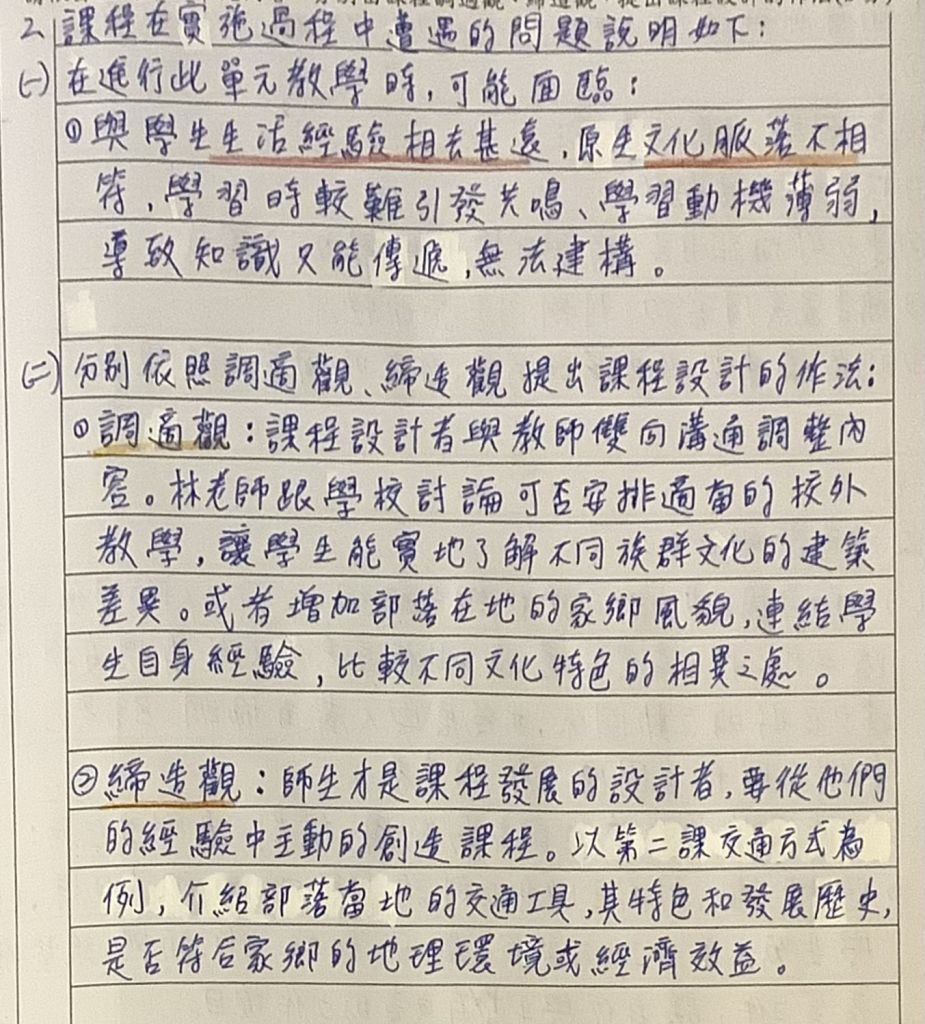 2. 課程在實施過程中遭遇的問題說明如下：
(一) 在進行此單元教學時，可能面臨：
① 與學生生活經驗相去甚遠，原生文化脈落不相
符，學習時較難引發共鳴、學習動機薄弱，
導致知識只能傳遞，無法建構。
(二) 分別依照調適觀、締造觀提出課程設計的作法：
① 調適觀：課程設計者與教師雙向溝通調整內
容。林老師跟學校討論可否安排適當的校外
教學，讓學生能實地了解不同族群文化的建築
差異。或者增加部落在地的家鄉風貌，連結學
生自身經驗，比較不同文化特色的相異之處。
② 締造觀：師生才是課程發展的設計者，要從他們
的經驗中主動的創造課程。以第二課交通方式為
例，介紹部落當地的交通工具，其特色和發展歷史，
是否符合家鄉的地理環境或經濟效益。